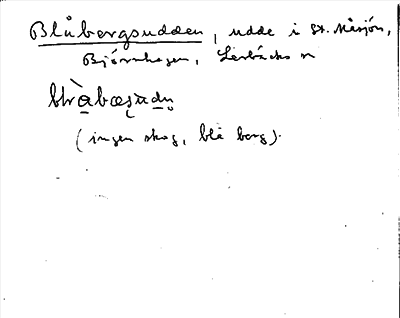 Blåbergsudden, udde i St. Måsjön,
Björnhagen, Lerbäcks n
(ingen skog, blå berg).